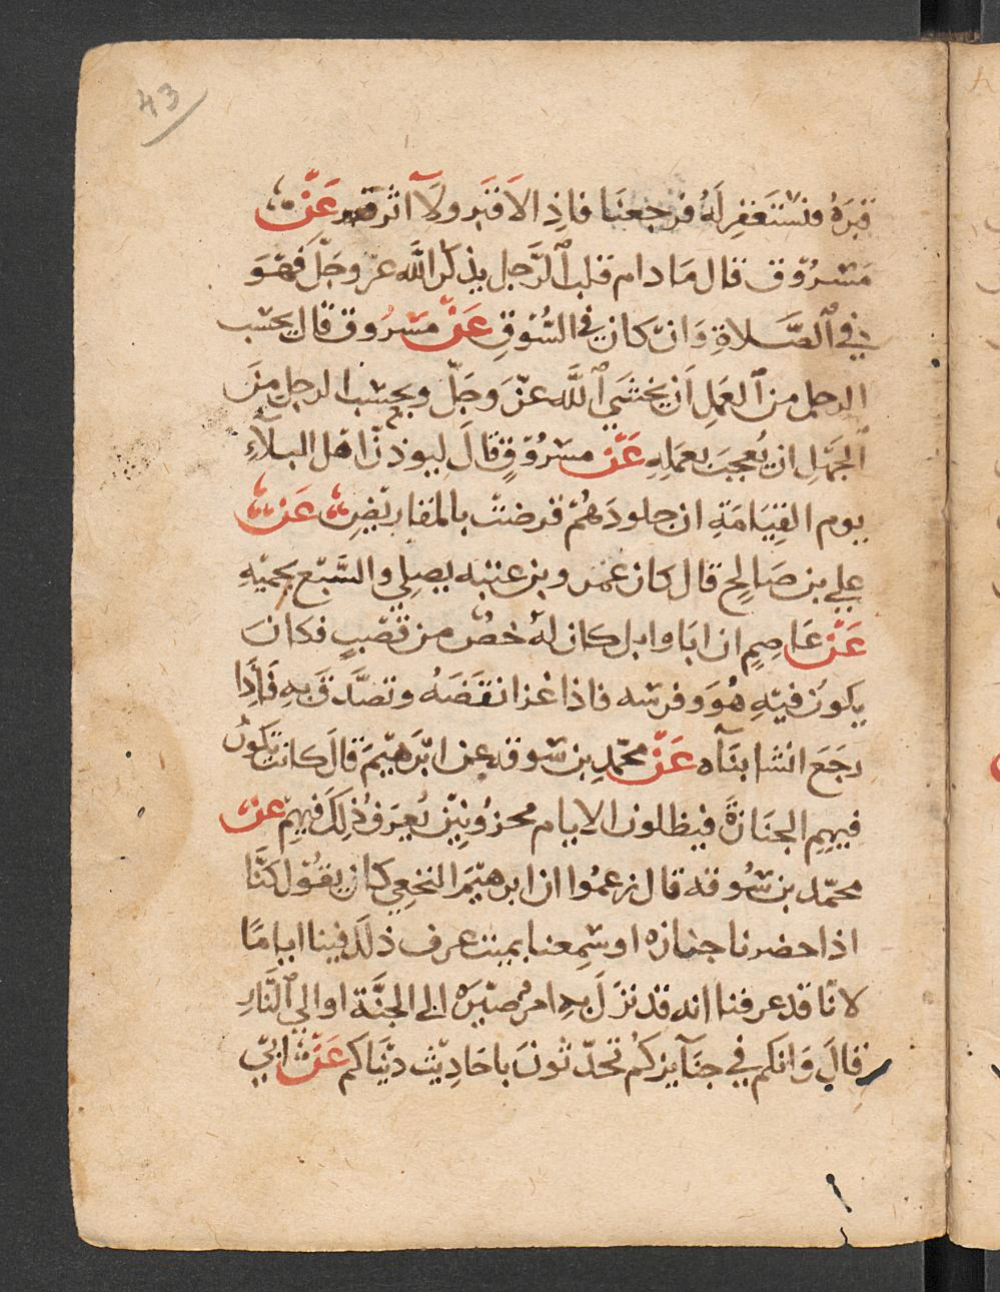 43
قبرَهُ فنستَغفِر لَهُ فرجعنَا فاذِا لاَ قبَر ولَآ اثر قبر عَنْ
مَسْروُق قال مَا دام قلب الرَّجل يذكر اللَّه عزّ وجَلّ فهوَ
في الصَّلاةِ وَانْ كان في السُّوقِ عَنْ مسرُوق قال بحسْب
الرجل من العَملِ اَن يخشَي اللَّه عزّ وَجَلّ وبحسْب الرجل منَ
الجَهْلِ ان يُعجبَ بعَملِهِ عَنْ مسْرُوْقٍ قالَ ليودنْ اهْل البلآءِ
يوم القِيَامَةِ ان جلودَهُمْ قرضتْ بالمقَاريْضِ عَن
علي بن صَالحٍ قال كان عَمرو بن عتبه يصلي والسَّبْع يحميْهِ
عَنْ عَاصِمٍ ان ابَا وايل كان لهُ خصٌّ من قصَبٍ فكانَ
يكوُن فيْهِ هُوَ وفرسَه فاذا غزا نقَضَهُ وتصَّدقَ بهِ فَاِذَا
رجَعَ انشا بنَآه عَنْ محمّدِ بن سوقه عن ابْرَهيْمَ قالَ كانت تكونُ
فيهِمِ الجنَازةَ فيظلون الايام محزوُنيْن يُعرَفُ ذلِكَ فيهِمْ عن
محمّد بن سُوقه قال زعمُوا ان ابرهيْمَ النخعي كان يقُوْل كنَّا
اذا حضرنا جنازه او سَمِعنا بميت عرف ذلَك فينا ايامًا
لانّا قد عرفنا انه قد نزَل به امر صيّرَه الى الجنَّة او الي النَّارِ
قالَ وَانكم في جنَآيزكُم تحدّثونَ باحَاديْث دنْيَاكم عَنْ ابيْ